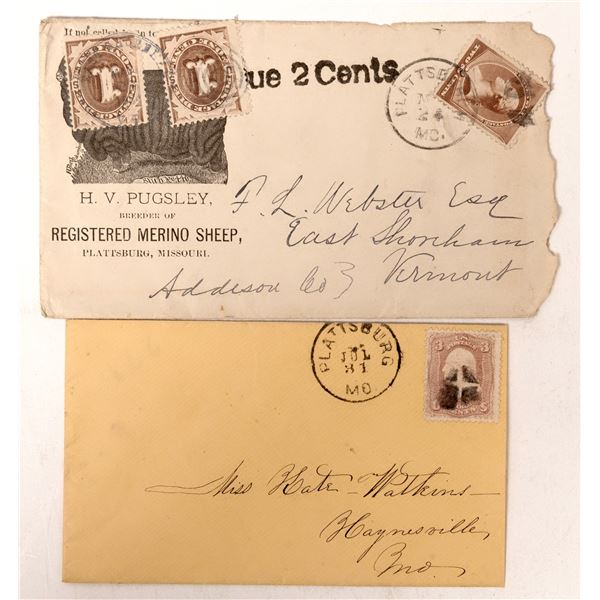 If not called
ue 2 Cents
PLATTSBU
24
MO.
H. V. PUGSLEY,
BREEDER OF
REGISTERED MERINO SHEEP,
PLATTSBURG, MISSOURI.
F. L. Webster Esq
East Shoreham
Addeson Co Vermont
PLATTSBURG
JUL
31
MO.
3 U.S. 3
POSTAGE
Miss Kate Watkins
Haynesville,
Mo.